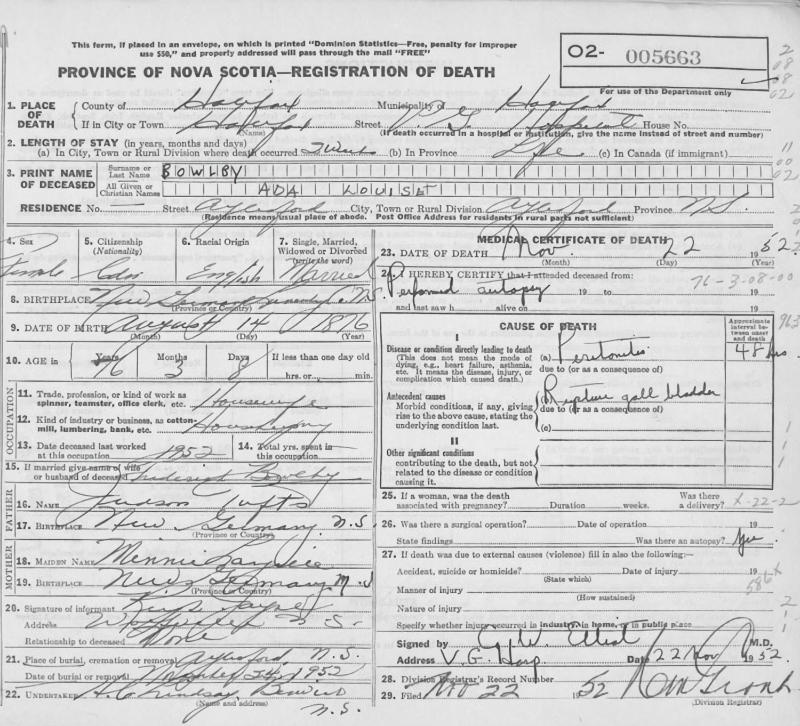 This form, if placed in an envelope, on which is printed "Dominion Statistics—Free, penalty for improper
use $50," and properly addressed will pass through the mail "FREE"
O2- 005663
PROVINCE OF NOVA SCOTIA—REGISTRATION OF DEATH
For use of the Department only
1. PLACE OF DEATH { County of Halifax Municipality of Halifax
If in City or Town Halifax Street V. G. Hospital House No.
(Name) (If death occurred in a hospital or institution, give the name instead of street and number)
2. LENGTH OF STAY (in years, months and days)
(a) In City, Town or Rural Division where death occurred (b) In Province Life (c) In Canada (if immigrant)
3. PRINT NAME OF DECEASED { Surname or Last Name BOWLBY
All Given or Christian Names ADA LOUISE
RESIDENCE No. — Street Aylesford City, Town or Rural Division Aylesford Province N.S.
(Residence means usual place of abode. Post Office Address for residents in rural parts not sufficient)
4. Sex 5. Citizenship (Nationality) 6. Racial Origin 7. Single, Married, Widowed or Divorced (write the word)
Female Cdn English Married
8. BIRTHPLACE New Germany N.S.
(Province or Country)
9. DATE OF BIRTH August 14 1876
(Month) (Day) (Year)
10. AGE in Years Months Days If less than one day old
76 3 8 hrs. or min.
OCCUPATION
11. Trade, profession, or kind of work as spinner, teamster, office clerk, etc. Housewife
12. Kind of industry or business, as cotton-mill, lumbering, bank, etc. Housekeeping
13. Date deceased last worked at this occupation 1952 14. Total yrs. spent in this occupation
15. If married give name of wife or husband of deceased Frederick Bowlby
FATHER
16. NAME Judson Tufts
17. BIRTHPLACE New Germany N.S.
(Province or Country)
MOTHER
18. MAIDEN NAME Minnie
19. BIRTHPLACE New Germany N.S
(Province or Country)
20. Signature of informant
Address N.S.
Relationship to deceased None
21. Place of burial, cremation or removal Aylesford, N.S.
Date of burial or removal November 1952
22. UNDERTAKER H. C. Lindsay, Berwick
(Name and address) N.S.
MEDICAL CERTIFICATE OF DEATH
23. DATE OF DEATH Nov 22 1952
(Month) (Day) (Year)
24. I HEREBY CERTIFY that I attended deceased from: 76-3-08-00
Performed autopsy 19 to 19
and last saw h alive on 19
CAUSE OF DEATH
Approximate interval between onset and death
I
Disease or condition directly leading to death (a) Peritonitis 48 hrs.
(This does not mean the mode of dying, e.g., heart failure, asthenia, etc. It means the disease, injury, or complication which caused death.)
due to (or as a consequence of)
Antecedent causes (b) Rupture gall bladder
Morbid conditions, if any, giving rise to the above cause, stating the underlying condition last.
due to (or as a consequence of)
(c)
II
Other significant conditions
contributing to the death, but not related to the disease or condition causing it.
25. If a woman, was the death associated with pregnancy? Duration weeks. Was there a delivery? X-22-2
26. Was there a surgical operation? Date of operation 19
State findings Was there an autopsy? Yes
27. If death was due to external causes (violence) fill in also the following:—
Accident, suicide or homicide? Date of injury 19
(State which)
Manner of injury 586
(How sustained)
Nature of injury
Specify whether injury occurred in industry, in home, or in public place
Signed by M.D.
Address V. G. Hosp Date 22 Nov 1952
28. Division Registrar's Record Number
29. Filed Nov 22 1952
(Division Registrar)